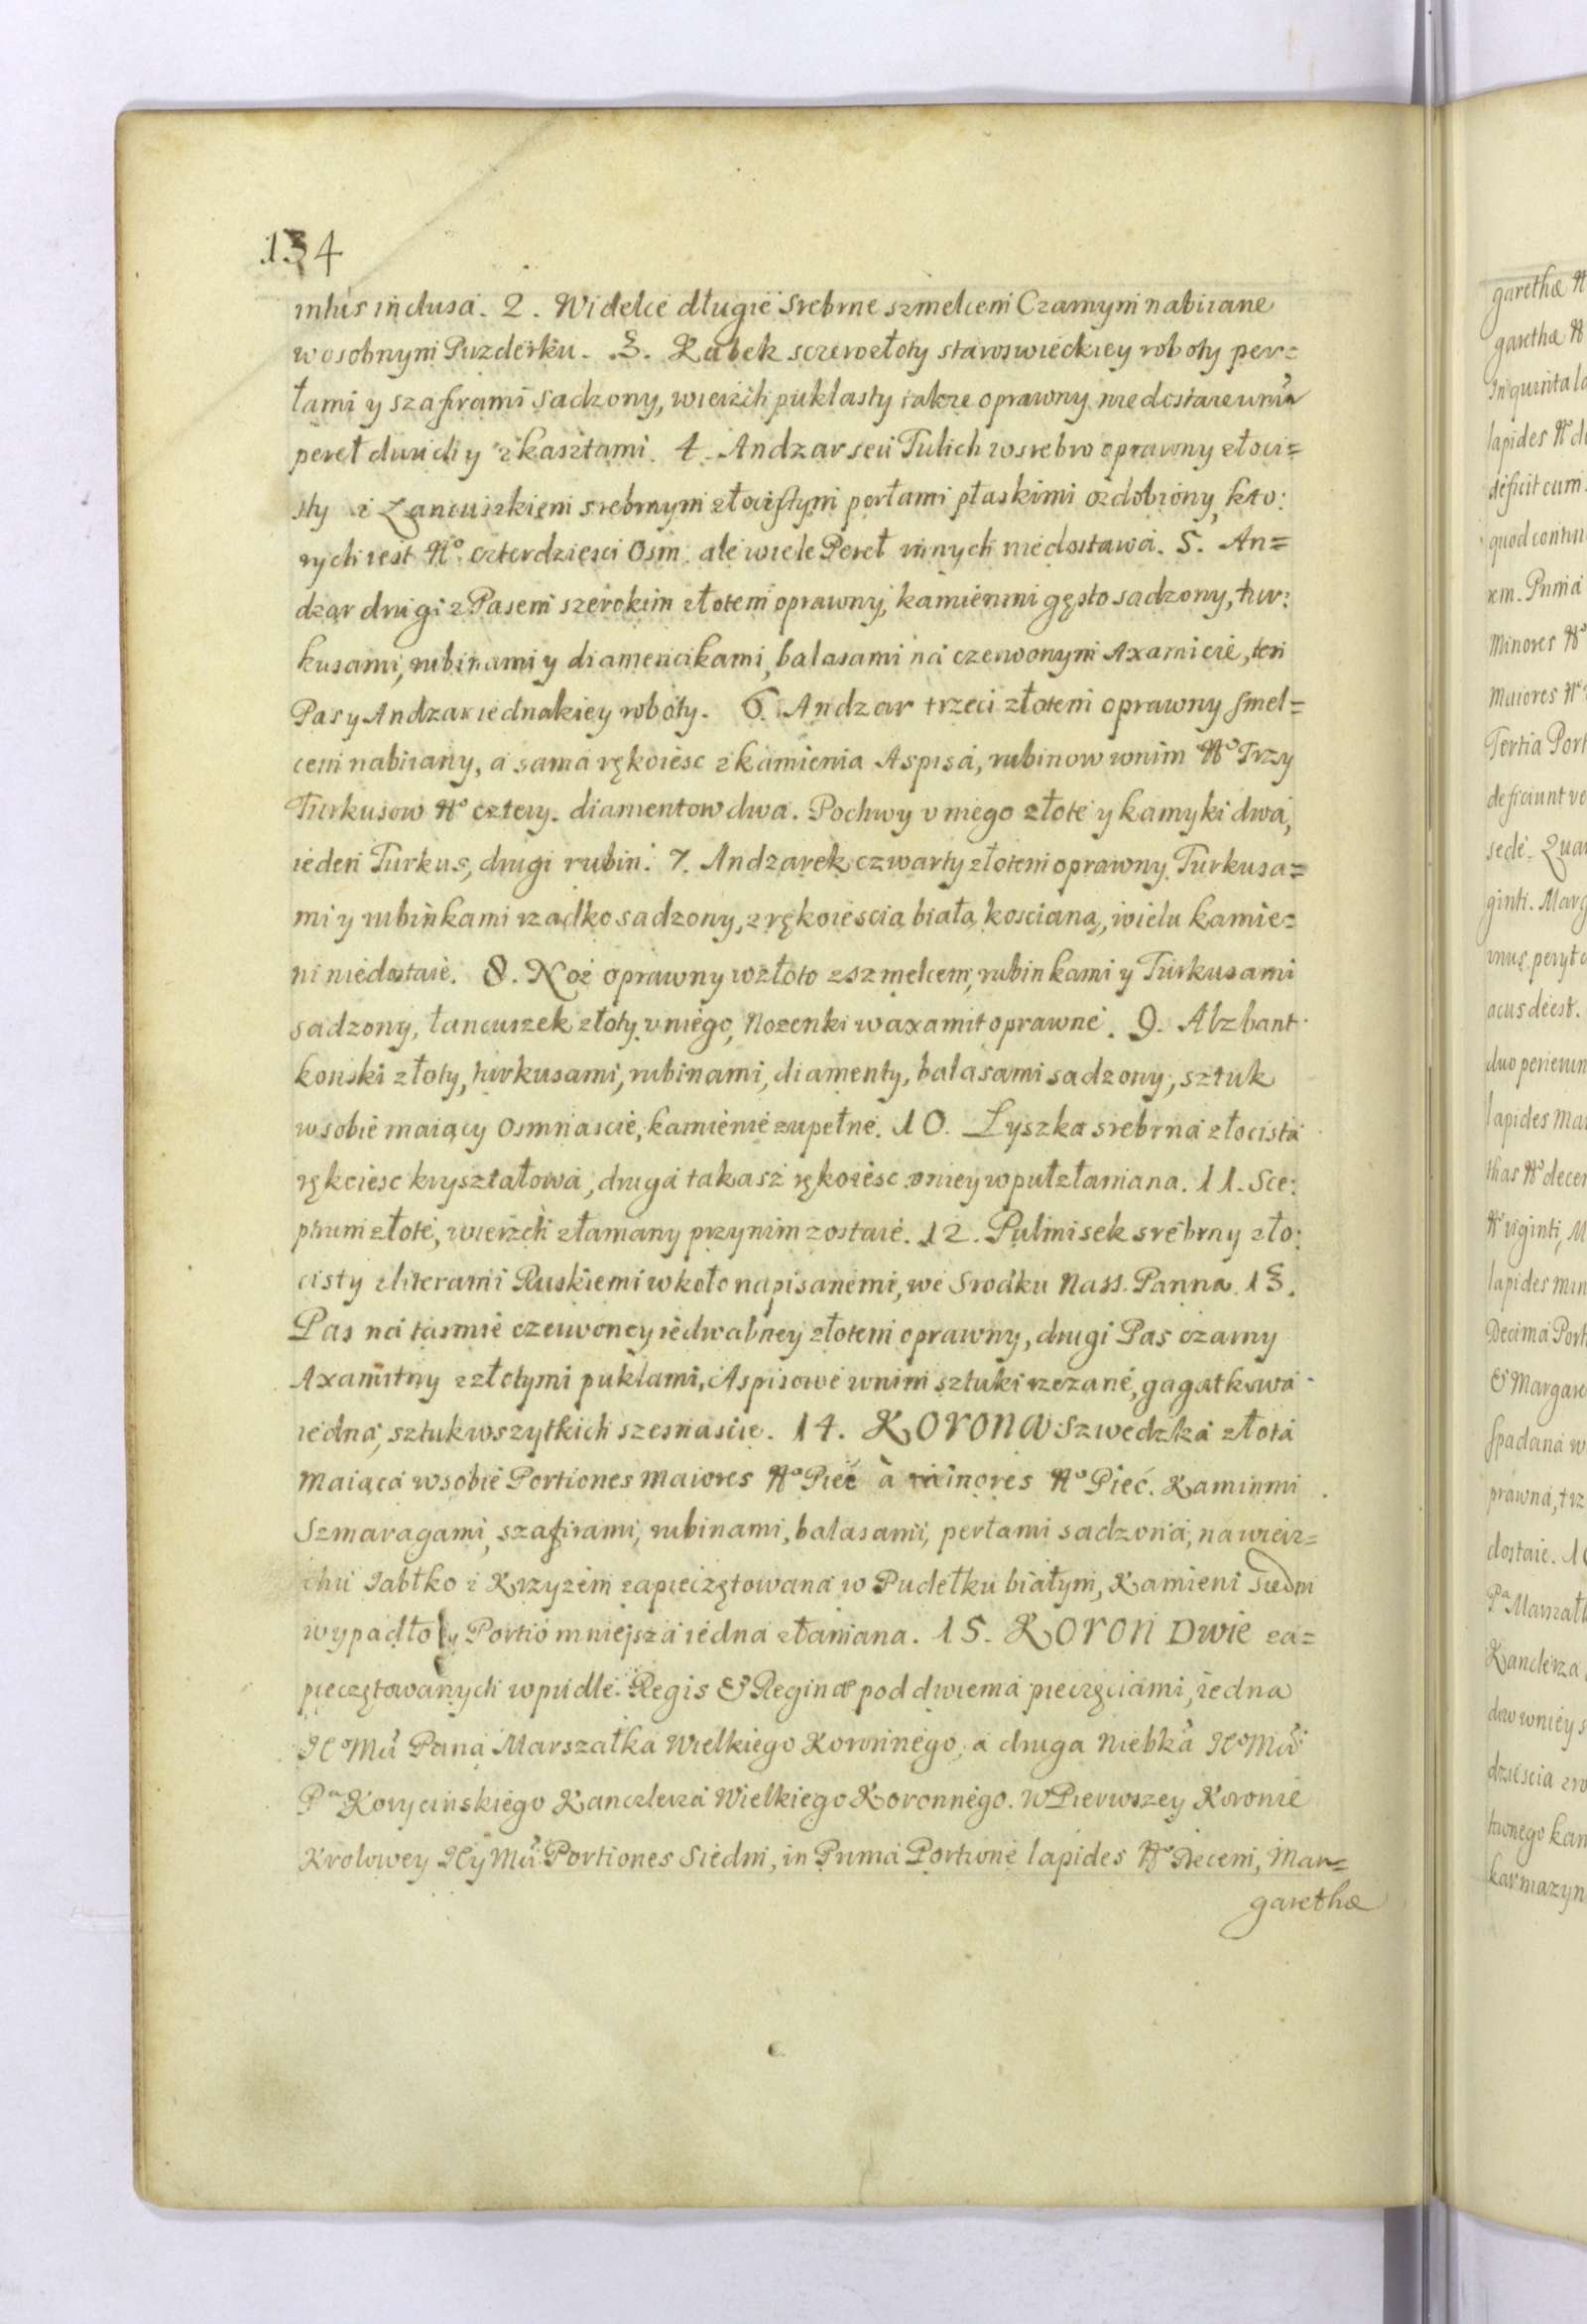 134
intus inclusa. 2. Widelce długie srebrne szmelcem Czarnym nabiiane
w osobnym Puzderku. 3. Kubek sczerozłoty staroswieckiey roboty per=
łami y szafirami sadzony, wierzch puklasty także oprawny niedostaie unia
pereł dwuch y z kasztami. 4. Andzar seu Tulich w srebro oprawny złoci=
sty z Łancuszkiem srebrnym złocistym perłami płaskimi ozdobiony, kto:
rych iest No. czterdziesci Osm. ale wiele Pereł innych niedostawa. 5. An=
dzar drugi z Pasem szerokim złotem oprawny, kamienmi gęsto sadzony, tur:
kusami, rubinami y diamencikami, balasami na czerwonym Axamicie, ten
Pas y Andzar iednakiey roboty. 6. Andzar trzeci złotem oprawny smel=
cem nabiiany, a sama rękoiesc z kamienia Aspisa, rubinow w nim No Trzy
Turkusow No cztery. diamentow dwa. Pochwy v niego złote y kamyki dwa,
ieden Turkus, drugi rubin. 7. Andzarek czwarty złotem oprawny Turkusa=
mi y rubinkami rzadko sadzony, z rękoiescią białą koscianą, wielu kamie=
ni niedostaie. 8. Noż oprawny w złoto z szmelcem, rubinkami y Turkusami
sadzony, łancuszek złoty v niego, Nozenki w axamit oprawne. 9. Alzbant
konski złoty, turkusami, rubinami, diamenty, balasami sadzony, sztuk
w sobie maiący Osmnascie, kamienie zupełne. 10. Łyszka srebrna złocista
rękoiesc kryształowa, druga takasz rękoiesc v niey w puł złamana. 11. Sce:
ptrum złote, wierzch złamany przy nim zostaie. 12. Pulmisek srebrny zło:
cisty z literami Ruskiemi w koło napisanemi, we Srodku Nass. Panna. 13.
Pas na tasmie czerwoney iedwabney złotem oprawny, drugi Pas czarny
Axamitny z złotymi puklami, Aspisowe w nim sztuki rzezane, gagatkowa
iedna, sztuk wszytkich szesnascie. 14. KORONA Szwedzka złota
Maiąca w sobie Portiones Maiores No Pięć à minores No Pięć. Kaminmi
Szmaragami, szafirami, rubinami, balasami, perłami sadzona, na wierz=
chu Iabłko z Krzyzem zapieczętowana w Pudełku białym, Kamieni siedm
wypadło y Portio mnieysza iedna złamana. 15. KORON Dwie za=
pieczętowanych w pudle. Regis & Reginæ pod dwiema pieczęciami, iedna
IeoMci Pana Marszałka Wielkiego Koronnego, a druga Niebka IeoMci
Pa Korycinskiego Kanclerza Wielkiego Koronnego. W Pierwszey Koronie
Krolowey IeyMci Portiones Siedm, in Prima Portione lapides No Decem, Mar=
garethæ